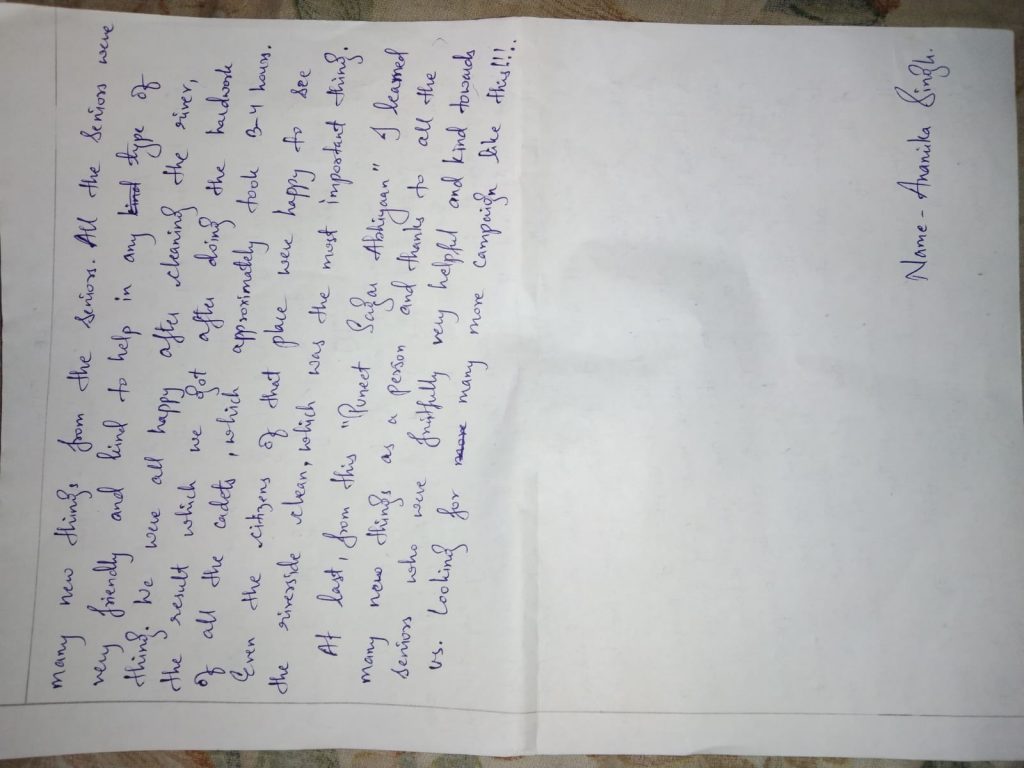 many new things from the seniors. All the seniors were
very friendly and kind to help in any kind type of
thing. We were all happy after cleaning the river,
the result which we got after doing the hardwork
of all the cadets, which approximately took 3-4 hours.
Even the citizens of that place were happy to see
the riverside clean, which was the most important thing.
At last, from this "Puneet Sagar Abhiyaan" I learned
many new things as a person and thanks to all the
seniors who were fruitfully very helpful and kind towards
us. Looking for more many more campaign like this!!..
Name - Anamika Singh.